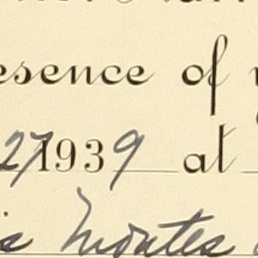 esence of
27 1939 at
is Montes